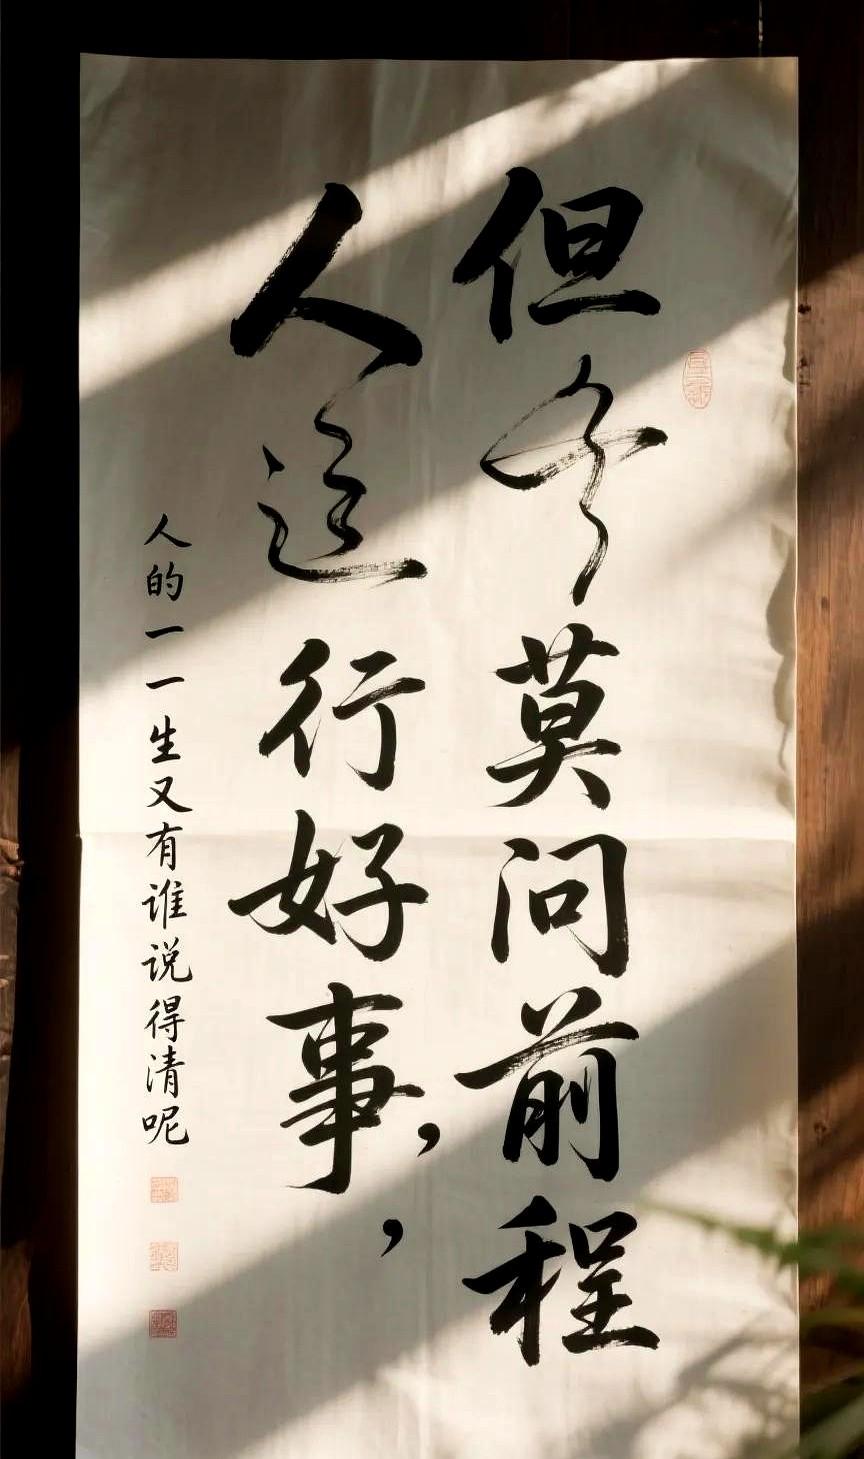 但莫问前程
人行好事，，
人的一一生又有谁说得清呢